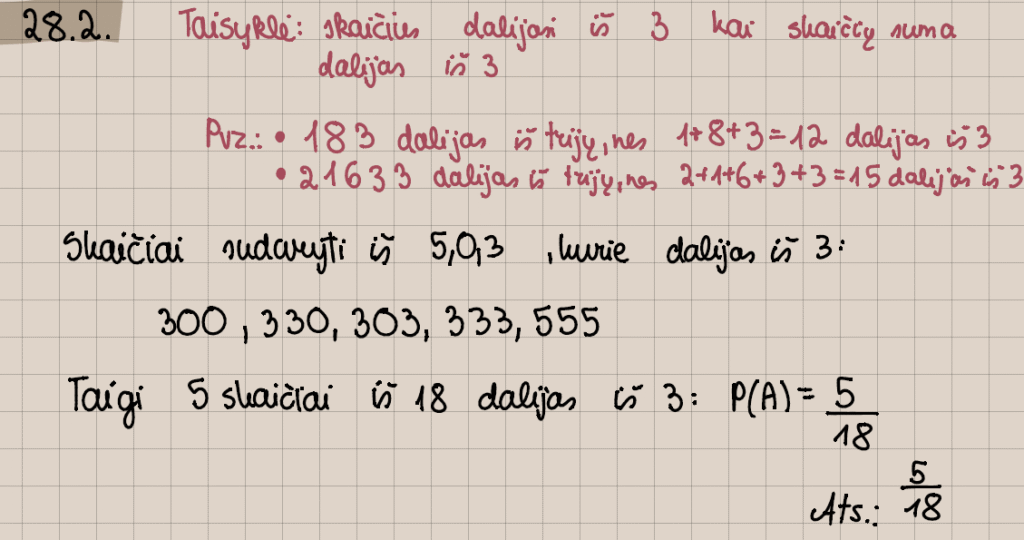 28.2. Taisyklė: skaičius dalijasi iš 3 kai skaičių suma
dalijas iš 3
Pvz.: • 183 dalijas iš trijų, nes 1+8+3=12 dalijas iš 3
• 21633 dalijas iš trijų, nes 2+1+6+3+3=15 dalijas iš 3
Skaičiai sudaryti iš 5,0,3 , kurie dalijas iš 3:
300, 330, 303, 333, 555
Taigi 5 skaičiai iš 18 dalijas iš 3: P(A) = 5/18
Ats.: 5/18